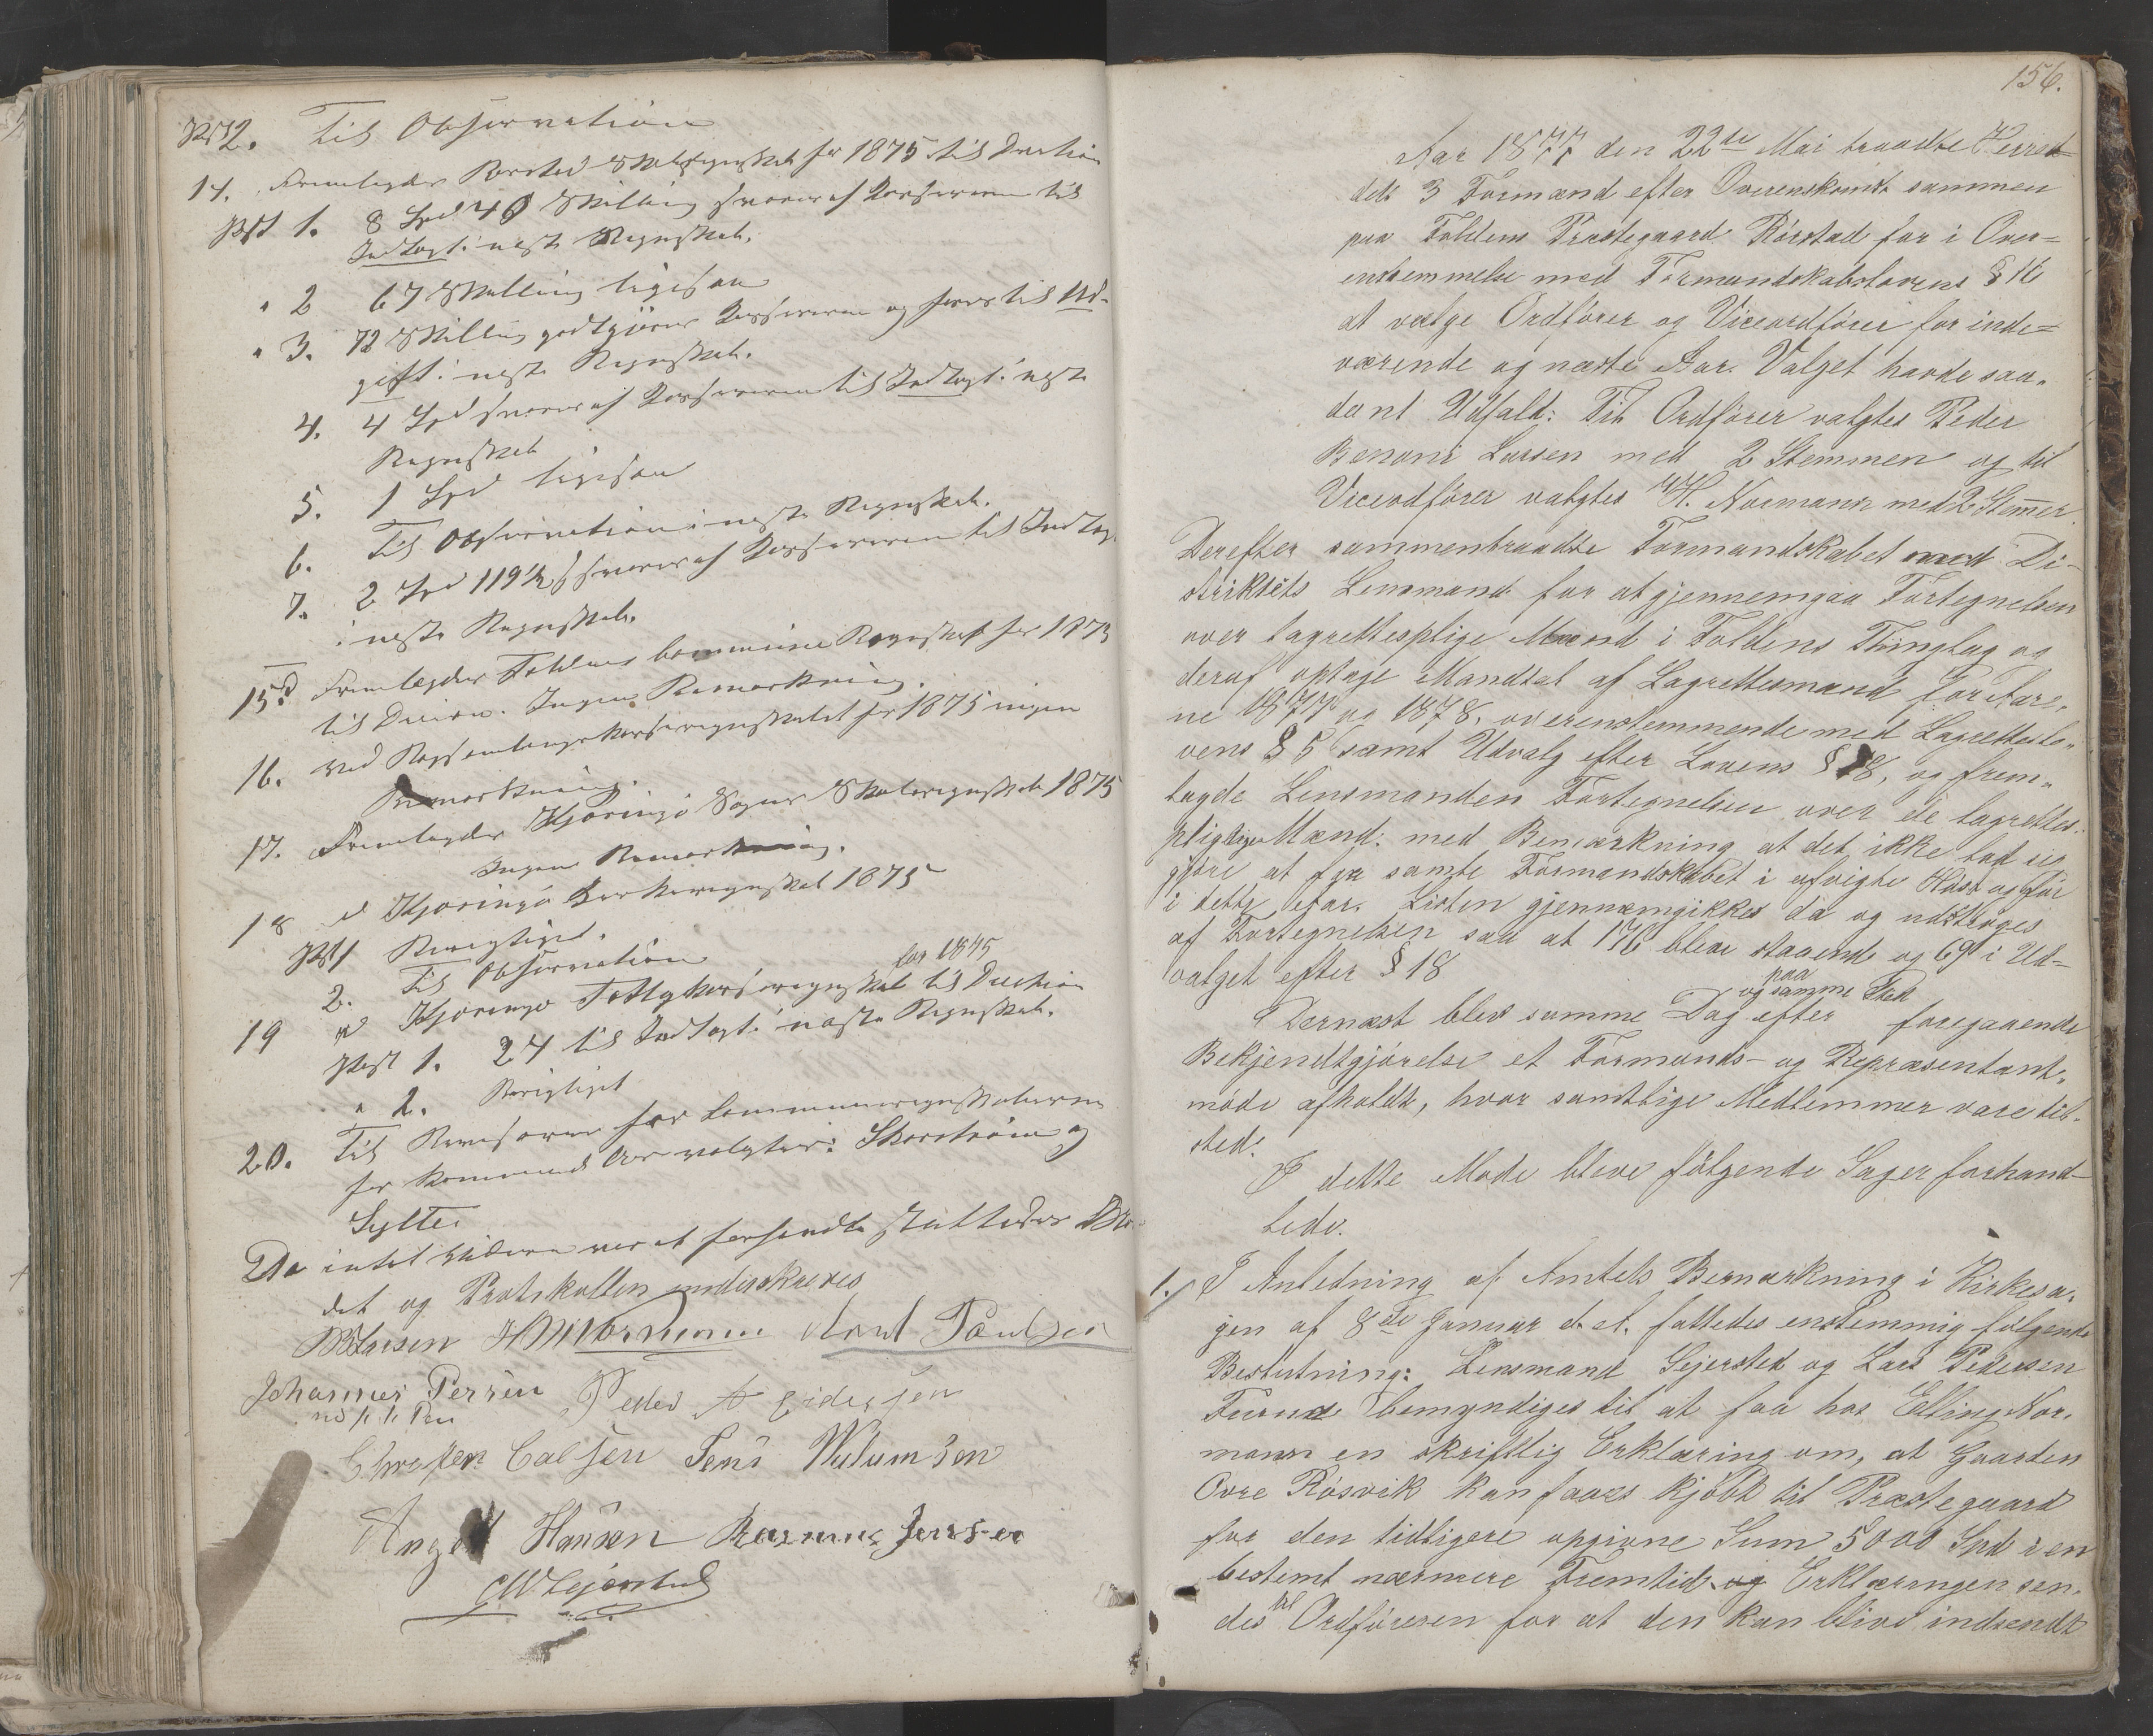 Post 2. Til Observation
14. Fremlagdes Rørstad Skoleregnskab for 1875 til Decision
Post 1. 8 Spd 40 Skilling svares af Kassereren til
Indtægt i neste Regnskab.
" 2 67 Skilling ligesaa
" 3. 72 Skilling godtgjøres Kassereren og føres til Ud-
gift i neste Regnskab.
4. 4 Spd svares af Kassereren til Indtægt i neste
Regnskab
5. 1 Spd ligesaa
6. Til Observation i neste Regnskab.
7. 2 Spd 119½ s svares af Kassereren til Indtægt
i neste Regnskab.
15. Fremlagdes Foldens Kommune Regnskab for 1875
til Decision. Ingen Bemærkning.
16. Ved regnskabet for 1875 ingen
Bemærkning.
17. Fremlagdes Kjæringø Sogns Skoleregnskab 1875
Ingen Bemærkning.
18 d Kjæringø Kirkeregnskab 1875
Post 1 Berigtiget.
2. Til Observation
for 1875
19 d Kjæringø Fattigkasseregnskab til Decision
Post 1. 24 til Indtægt i næste Regnskab.
" 2. Berigtiget
20. Til Revisorer for Kommuneregnskaberne
for kommende Aar valgtes: Skarstrøm og
Sylter
Da intet videre var at forhandle sluttedes Mø-
det og Protokollen underskreves
PBLarsen Normann Arnt Paulsen
Johannes Persen Peder A Eidessen
Christen Carlsen Jens Wilumsen
Hansen Rasmus Jenssen
CWSejersted
156.
Aar 1877 den 22de Mai traadte Herred-
dets 3 Formænd efter Overenskomst sammen
paa Foldens Præstegaard Rørstad for i Over=
ensstemmelse med Formandskabslovens § 16
at vælge Ordfører og Viceordfører for inde=
værende og næste Aar. Valget havde saa-
dant Udfald: Til Ordfører valgtes Peder
Benoni Larsen med 2 Stemmer og til
Viceordfører valgtes H. Normann med 2 Stemer.
Derefter sammentraadte Formandskabet med Di-
striktets Lensmand for at gjennemgaa Fortegnelsen
over lagrettesplige Mænd i Foldens Thinglag og
deraf optage Mandtal af Lagrettesmænd for Aare-
ne 1877 og 1878, overensstemmende med Lagretteslo-
vens § 5 samt Udvalg efter Lovens § 18, og frem-
lagde Lensmanden Fortegnelsen over de lagrettes-
pligtige Mænd: med Bemærkning at det ikke lod sig
gjøre at faa samle Formandskabet i afvigte Høst og før
i dette Aar. Listen gjennemgikkes da og udstrøges
af Fortegnelsen saa at 176 bleve staaende og 69 i Ud-
valget efter § 18
paa
og samme Sted
Dernæst blev samme Dag efter foregaaende
Bekjendtgjørelse et Formands- og Repræsentant-
møde afholdt, hvor samtlige Medlemmer vare til-
sted.
I dette Møde bleve følgende Sager forhand-
lede.
1. I Anledning af Amtets Bemærkning i Kirkesa-
gen af 8de Januar d. A. fattedes enstemmig følgende
Beslutning: Lensmand Sejersted og Lars Pedersen
Furnæs bemyndiges til at faa hos Elling Nor-
mann en skriftlig Erklæring om, at Gaarden
Øvre Røsvik kan faaes kjøbt til Præstegaard
for den tidligere opgivne Sum 5000 Spd i en
bestemt nærmere Fremtid og Erklæringen sen-
des til Ordføreren for at den kan blive indsendt